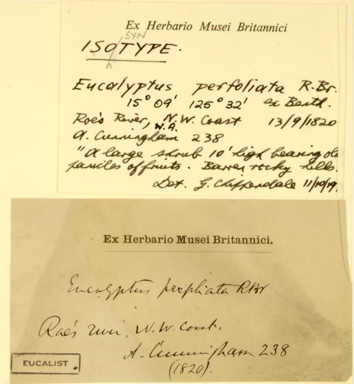 Ex Herbario Musei Britannici
SYN
ISOTYPE.
Eucalyptus perfoliata R.Br.
15° 09' 125° 32' ex Benth.
Roe's River, N.W. Coast 13/9/1820
W.A.
A. Cunningham 238
"A large shrub 10' high bearing old
panicles of fruits. Barren rocky hills.
Det. G. Chippendale
Ex Herbario Musei Britannici.
Eucalyptus perfoliata RBr
Roe's river. N.W. Coast.
A. Cunningham 238
(1820).
EUCALIST.